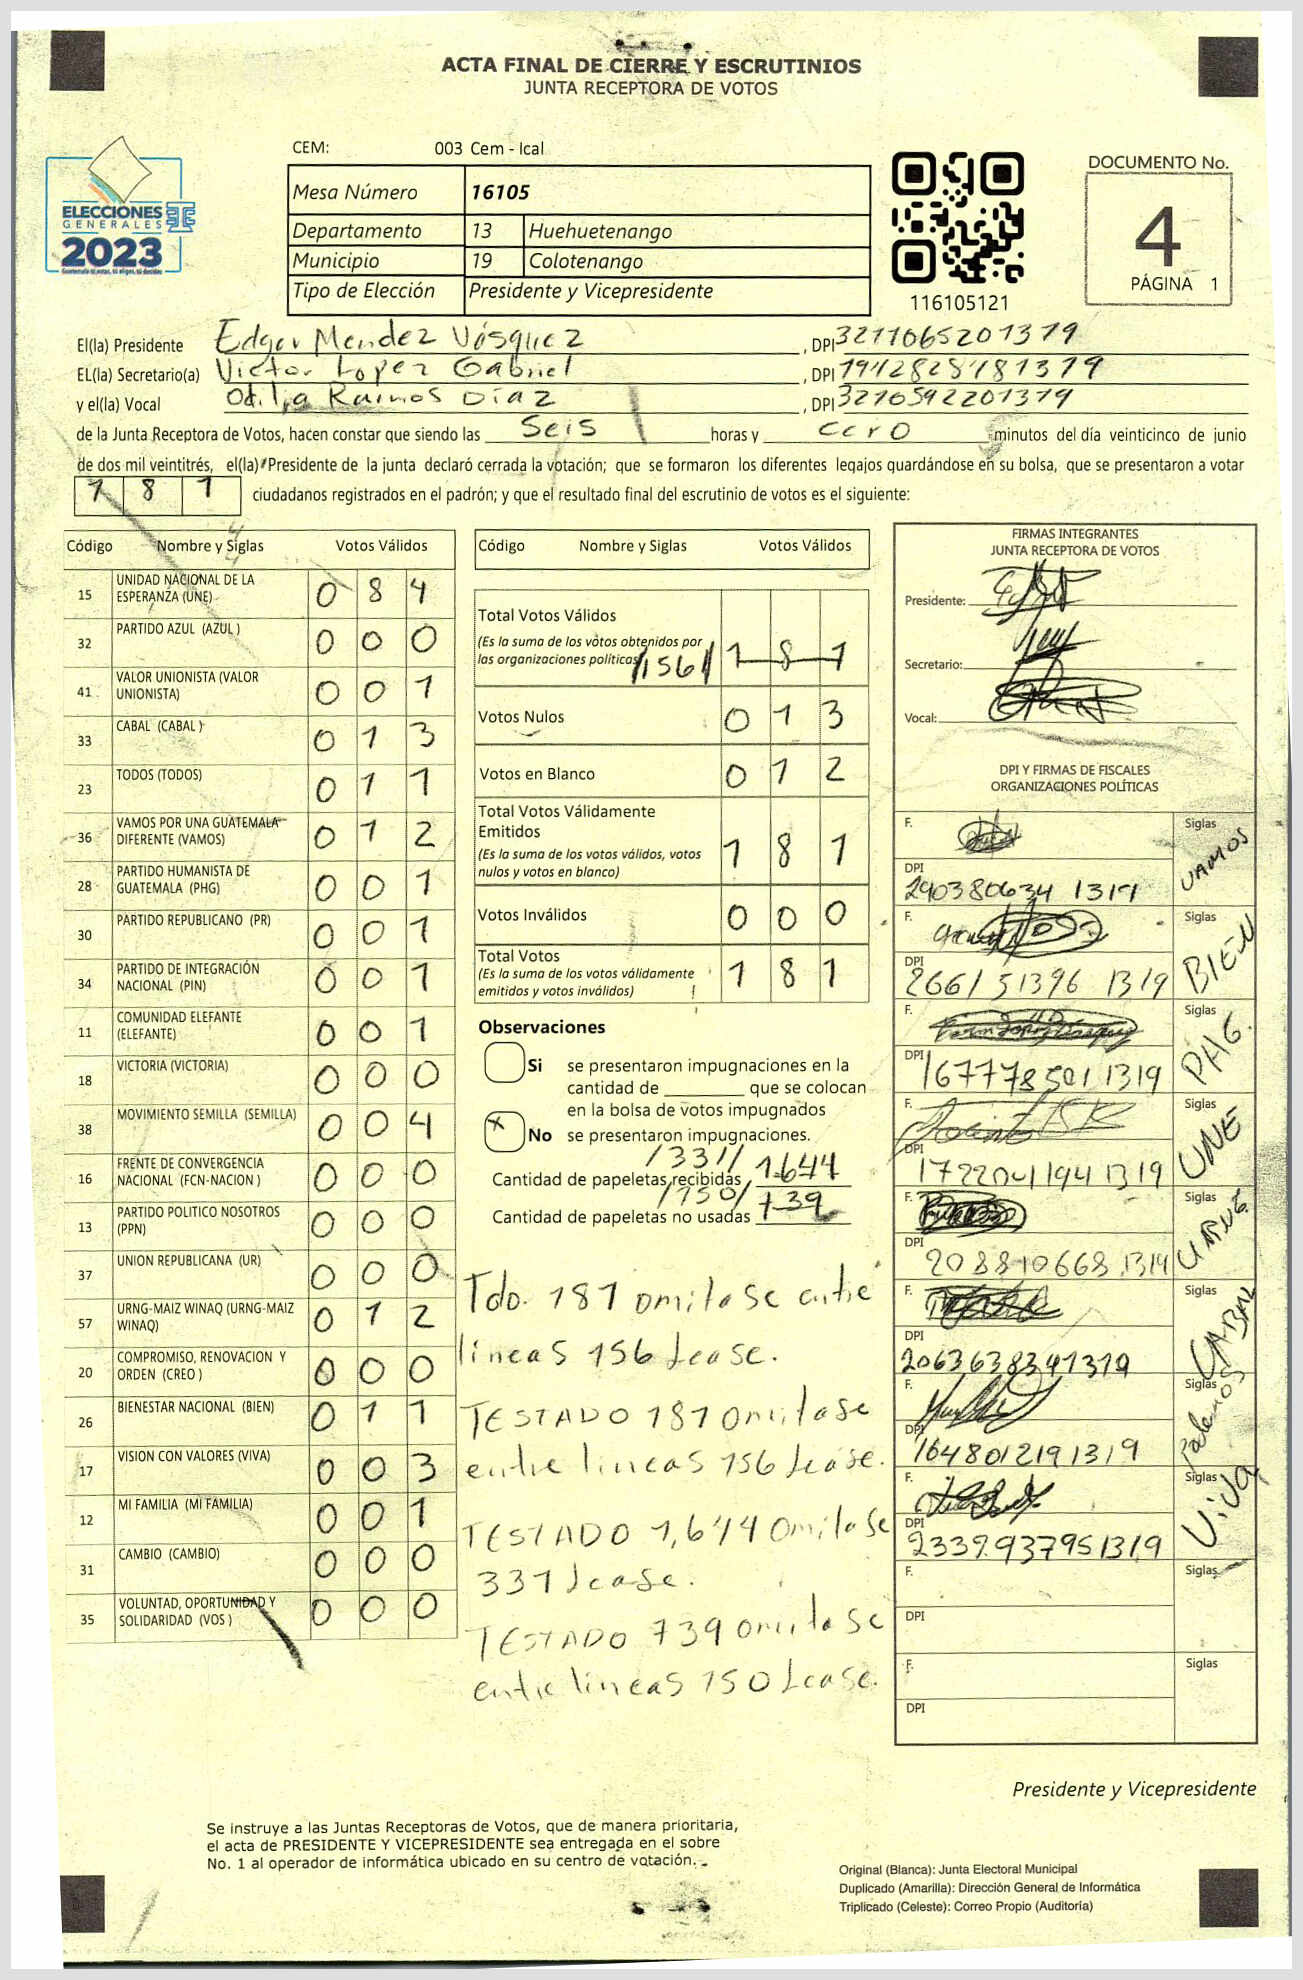 ACTA FINAL DE CIERRE Y ESCRUTINIOS
JUNTA RECEPTORA DE VOTOS
ELECCIONES
GENERALES
2023
CEM: 003 Cem - Ical
Mesa Número 16105
Departamento 13 Huehuetenango
Municipio 19 Colotenango
Tipo de Elección Presidente y Vicepresidente
116105121
DOCUMENTO No.
4
PÁGINA 1
El(la) Presidente Edgar Mendez Vásquez , DPI 3211065201319
EL(la) Secretario(a) Victor Lopez Gabriel , DPI 1912828181319
y el(la) Vocal Odilia Ramos Díaz , DPI 3210592201319
de la Junta Receptora de Votos, hacen constar que siendo las Seis horas y cero minutos del día veinticinco de junio
de dos mil veintitrés, el(la) Presidente de la junta declaró cerrada la votación; que se formaron los diferentes legajos guardándose en su bolsa, que se presentaron a votar
1 8 1 ciudadanos registrados en el padrón; y que el resultado final del escrutinio de votos es el siguiente:
Código Nombre y Siglas Votos Válidos
15 UNIDAD NACIONAL DE LA ESPERANZA (UNE) 0 8 4
32 PARTIDO AZUL (AZUL ) 0 0 0
41 VALOR UNIONISTA (VALOR UNIONISTA) 0 0 1
33 CABAL (CABAL ) 0 1 3
23 TODOS (TODOS) 0 1 1
36 VAMOS POR UNA GUATEMALA DIFERENTE (VAMOS) 0 1 2
28 PARTIDO HUMANISTA DE GUATEMALA (PHG) 0 0 1
30 PARTIDO REPUBLICANO (PR) 0 0 1
34 PARTIDO DE INTEGRACIÓN NACIONAL (PIN) 0 0 1
11 COMUNIDAD ELEFANTE (ELEFANTE) 0 0 1
18 VICTORIA (VICTORIA) 0 0 0
38 MOVIMIENTO SEMILLA (SEMILLA) 0 0 4
16 FRENTE DE CONVERGENCIA NACIONAL (FCN-NACION ) 0 0 0
13 PARTIDO POLITICO NOSOTROS (PPN) 0 0 0
37 UNION REPUBLICANA (UR) 0 0 0
57 URNG-MAIZ WINAQ (URNG-MAIZ WINAQ) 0 1 2
20 COMPROMISO, RENOVACION Y ORDEN (CREO ) 0 0 0
26 BIENESTAR NACIONAL (BIEN) 0 1 1
17 VISION CON VALORES (VIVA) 0 0 3
12 MI FAMILIA (MI FAMILIA) 0 0 1
31 CAMBIO (CAMBIO) 0 0 0
35 VOLUNTAD, OPORTUNIDAD Y SOLIDARIDAD (VOS ) 0 0 0
Código Nombre y Siglas Votos Válidos
Total Votos Válidos
(Es la suma de los votos obtenidos por
las organizaciones políticas) //156// 1 8 1
Votos Nulos 0 1 3
Votos en Blanco 0 1 2
Total Votos Válidamente
Emitidos
(Es la suma de los votos válidos, votos
nulos y votos en blanco) 1 8 1
Votos Inválidos 0 0 0
Total Votos
(Es la suma de los votos válidamente
emitidos y votos inválidos) 1 8 1
Observaciones
Si se presentaron impugnaciones en la
cantidad de ________ que se colocan
en la bolsa de votos impugnados
X No se presentaron impugnaciones.
/331//
Cantidad de papeletas recibidas 1,644
/150/
Cantidad de papeletas no usadas 139
Tdo. 181 omitase entre
lineas 156 Lease.
TESTADO 181 omitase
entre lineas 156 Lease.
TESTADO 1,644 Omitase
331 Lease.
TESTADO 139 omitase
entre lineas 150 Lease.
FIRMAS INTEGRANTES
JUNTA RECEPTORA DE VOTOS
Presidente:
Secretario:
Vocal:
DPI Y FIRMAS DE FISCALES
ORGANIZACIONES POLÍTICAS
F. Siglas VAMOS
DPI 290380634 1319
F. Siglas BIEN
DPI 2661 51396 1319
F. Siglas PHG.
DPI 167778501 1319
F. Siglas UNE
DPI 172204194 1319
F. Siglas URNG
DPI 208810668 1319
F. Siglas CABAL
DPI 2063638341319
F. Siglas Podemos
DPI 1648012191319
F. Siglas Viva
DPI 2339937951319
F. Siglas
DPI
F. Siglas
DPI
Presidente y Vicepresidente
Se instruye a las Juntas Receptoras de Votos, que de manera prioritaria,
el acta de PRESIDENTE Y VICEPRESIDENTE sea entregada en el sobre
No. 1 al operador de informática ubicado en su centro de votación.
Original (Blanca): Junta Electoral Municipal
Duplicado (Amarilla): Dirección General de Informática
Triplicado (Celeste): Correo Propio (Auditoría)